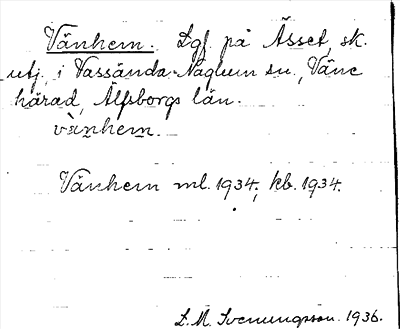 Vänhem. Lgf. på Ässet, sk.
utj. i Vassända-Naglum sn., Väne
härad, Älfsborgs län.
vä̀nhem.
Vänhem ml. 1934, kb. 1934.
L. M. Svenungsson. 1936.